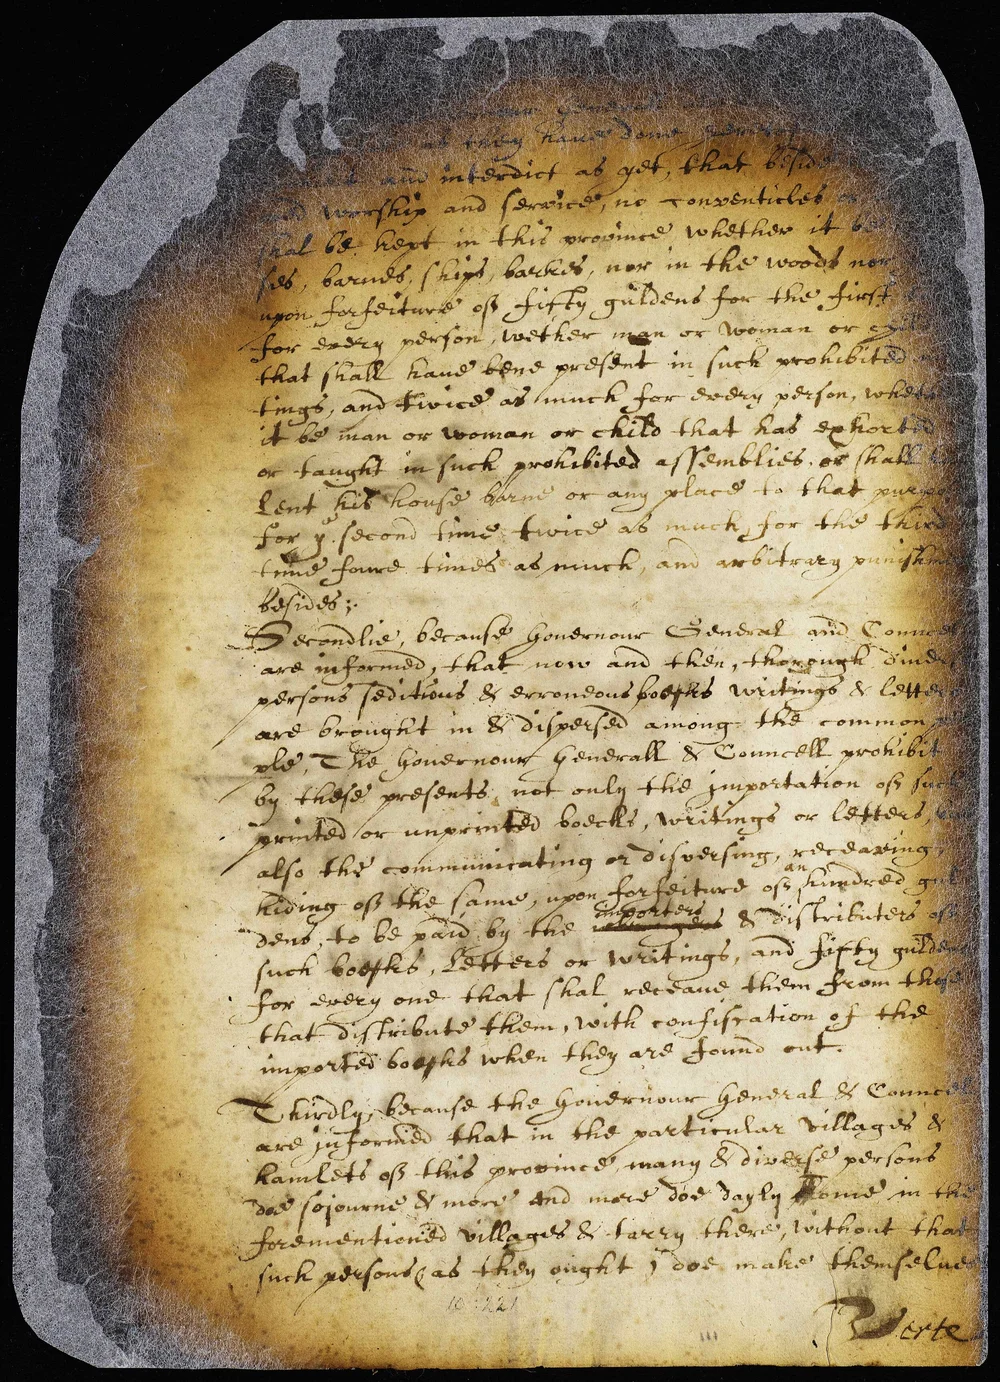 our General
as they have done
and interdict as yet, that beside
worship and service, no conventicles or
shal be kept in this province whether it be
ses, barnes, ships, barkes, nor in the woods nor
upon forfeiture off fifty guldens for the first
for every person, wether man or woman or
that shall have bene present in such prohibited
tings, and twice as much for every person, whet
it be man or woman or child that has exhorted
or taught in such prohibited assemblies, or shall
lent his house barne or any place to that purpo
for ye second time twice as much, for the third
time foure times as much, and arbitrary punishm
besides;
Secondlie, because Governour General and Councel
are informed, that now and then, thorough diver
persons seditious & erroneous boecks writings & letters
are brought in & dispersed among the common
ple, The Governour Generall & Councell prohibit
by these presents, not only the importation off such
printed or unprinted boecks, writings or letters,
also the communicating or dispersing, receaving,
hiding off the same, upon forfeiture off an hundred gul
dens, to be paid by the importers & distributers off
such boecks, letters or writings, and fifty guldens
for every one that shal receave them from those
that distribute them, with confiscation of the
imported boecks when they are found out.
Thirdly, because the Governour General & Councel
are informed that in the particular villages &
hamlets off this province many & diverse persons
doe sojourne & more and more doe dayly come in the
forementioned villages & tarry there, without that
such persons (as they ought) doe make themselves
Verte